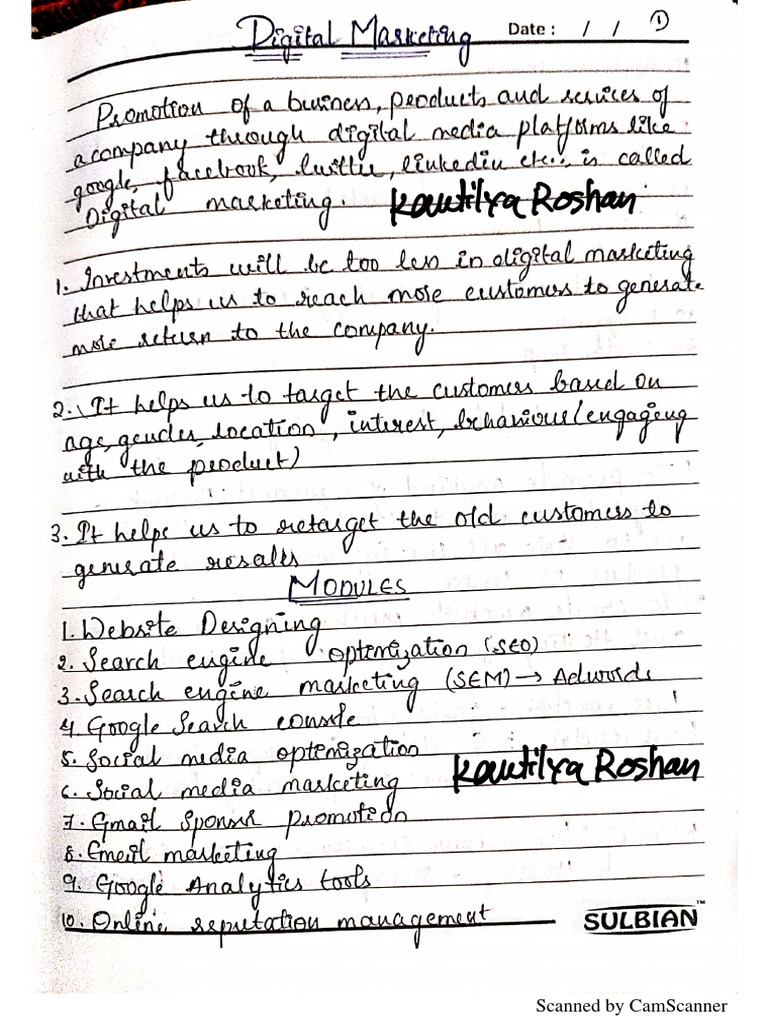 Digital Marketing Date : / / 1
Promotion of a business, products and services of
a company through digital media platforms like
google, facebook, twitter, linkedin etc.. is called
Digital marketing. Kautilya Roshan
1. Investments will be too less in digital marketing
that helps us to reach more customers to generate
more return to the company.
2. It helps us to target the customers based on
age, gender, location, interest, behaviour (engaging
with the product)
3. It helps us to retarget the old customers to
generate results
MODULES
1. Website Designing
2. Search engine optimization (SEO)
3. Search engine marketing (SEM) → Adwords
4. Google Search console
5. Social media optimization
6. Social media marketing Kautilya Roshan
7. Gmail Sponsr promotion
8. Email marketing
9. Google Analytics tools
10. Online reputation management SULBIAN™
Scanned by CamScanner